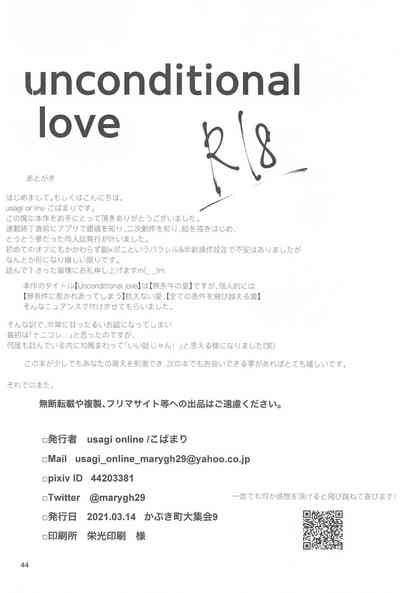 unconditional
love
R18
あとがき
はじめまして。もしくはこんにちは。
usagi online こばまりです。
この度は本作をお手にとって頂きありがとうございました。
連載終了直前にアプリで銀魂を知り、二次創作を知り、絵を描きはじめ、
とうとう夢だった同人誌発行が叶いました。
初めてのオフにもかかわらず
なんとか形になり嬉しい限りです。
読んで下さった皆様にお礼申し上げますm(_ _)m
本作のタイトル【Unconditional love】は【無条件の愛】ですが、個人的には
【無条件に惹かれあってしまう】【抗えない愛、【全ての条件を飛び越える愛】
そんなニュアンスで付けさせてもらいました。
そんな訳で、非常に甘ったるいお話になってしまい
最初は「ナニコレ…」と思ったのですが、
何度も読んでいる内に知周まわって「いい話じゃん！」と思える様になりました(笑)
この本が少しでもあなたの萌えを刺激でき、次の本でもお会いできる事があればとても嬉しいです。
それでは、また。
無断転載や複製、フリマサイト等への出品はご遠慮ください。
□発行者 usagi online /こばまり
□Mail usagi_online_marygh29@yahoo.co.jp
□pixiv ID 44203381
□Twitter @marygh29
一言でも何か感想を頂けると飛び跳ねて喜びます!
□発行日 2021.03.14 かぶき町大集会9
□印刷所 栄光印刷 様
44